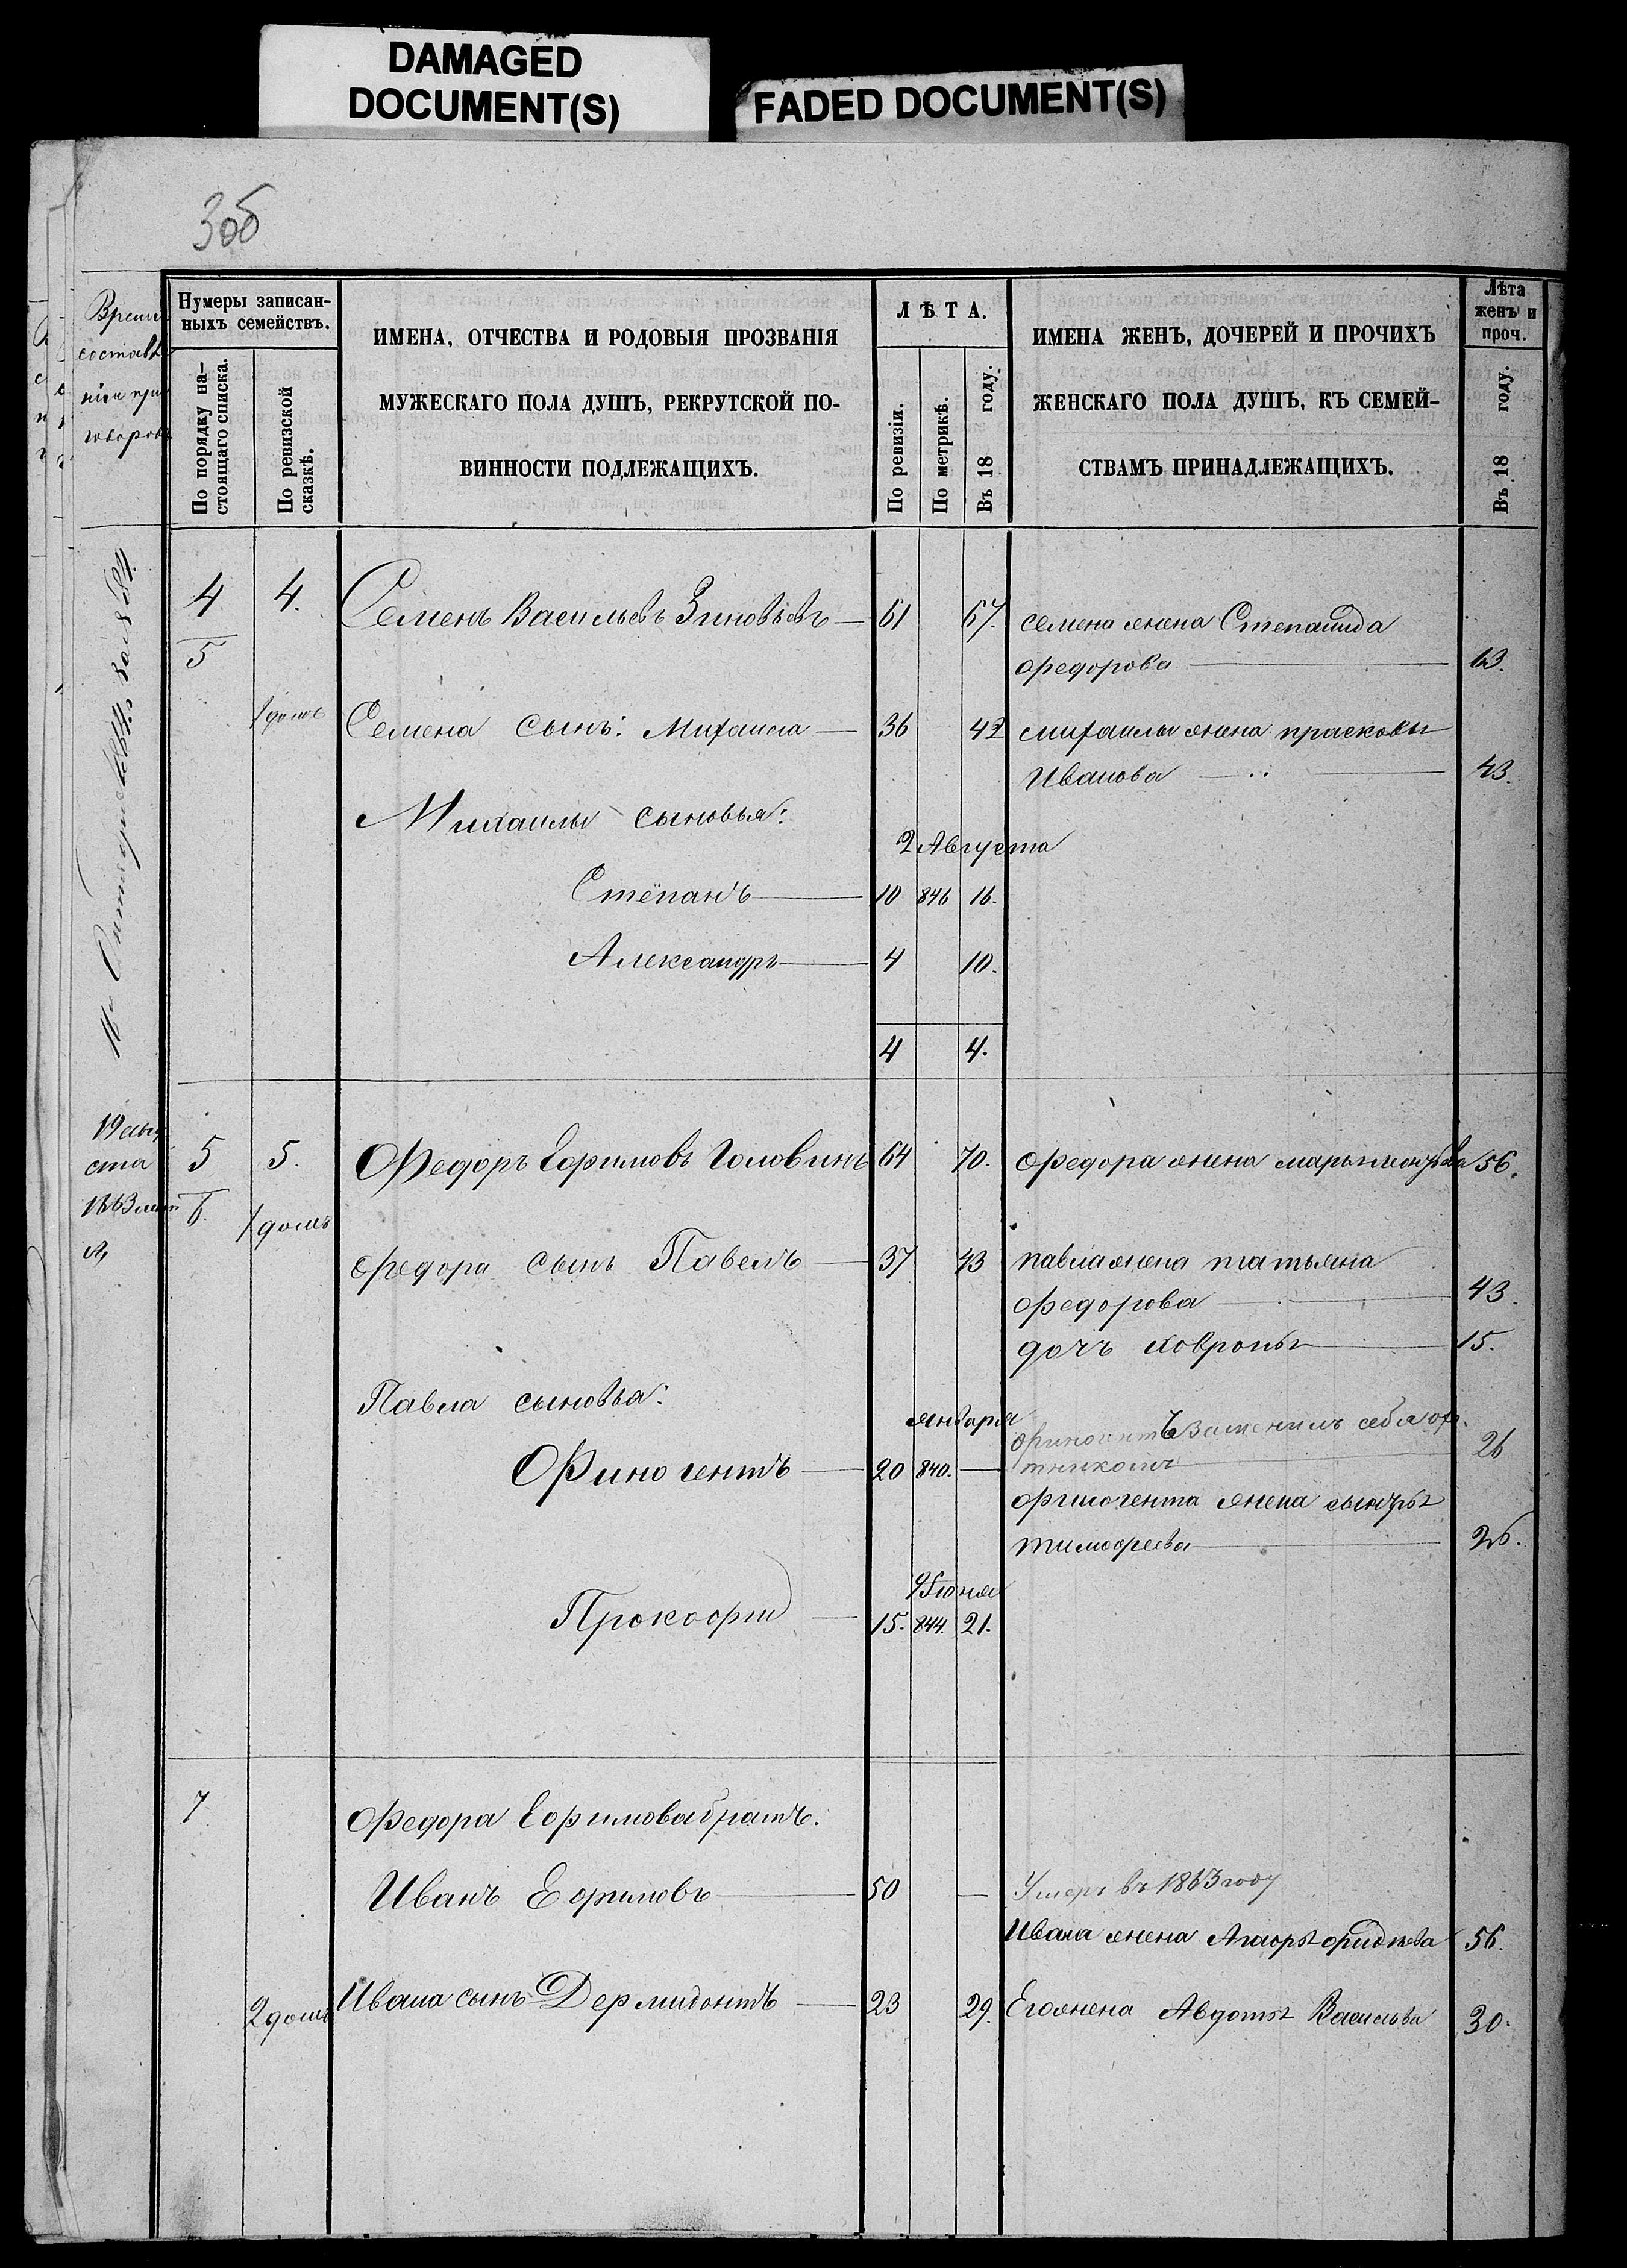 DAMAGED
DOCUMENT(S)
FADED DOCUMENT(S)
Нумеры записан-
ныхъ семействъ.
По порядку на-
стоящаго списка.
По ревизской
сказкѣ.
ИМЕНА, ОТЧЕСТВА И РОДОВЫЯ ПРОЗВАНІЯ
МУЖЕСКАГО ПОЛА ДУШЪ, РЕКРУТСКОЙ ПО-
ВИННОСТИ ПОДЛЕЖАЩИХЪ.
ЛѢТА.
По ревизіи.
По метрикѣ.
Въ 18 году.
ИМЕНА ЖЕНЪ, ДОЧЕРЕЙ И ПРОЧИХЪ
ЖЕНСКАГО ПОЛА ДУШЪ, КЪ СЕМЕЙ-
СТВАМЪ ПРИНАДЛЕЖАЩИХЪ.
Лѣта
женъ и
проч.
Въ 18 году.
4 4. Семенъ Васильевъ Зиновьевъ 61 67. семена жена Степанида
5 федорова 63.
1 домъ Семена сынъ: Михаила 36 42 михаилы жена прасковья
Иванова 43.
Михаилы сыновья:
2 Августа
Степанъ 10 846 16.
Александръ 4 10.
4 4.
19 авгу
ста
1863
5 5. Федоръ Ефимовъ Головинъ 64 70. федора жена марья 56.
6. 1 домъ
федора сынъ Павелъ 37 43 павла жена татьяна
федорова 43.
дочъ ховронья 15.
Павла сыновья:
января
Финогентъ 20 840. Финогентъ Заменилъ себя 26
финогента жена
тимофеева 26.
9 Іюня
Прокофій 15. 844. 21.
7 Федора Ефимова братъ.
Иванъ Ефимовъ 50 Умеръ въ 1863 году
Ивана жена Агафья 56.
2 домъ Ивана сынъ Дермидонтъ 23 29. Его жена Авдотья Васильева 30.